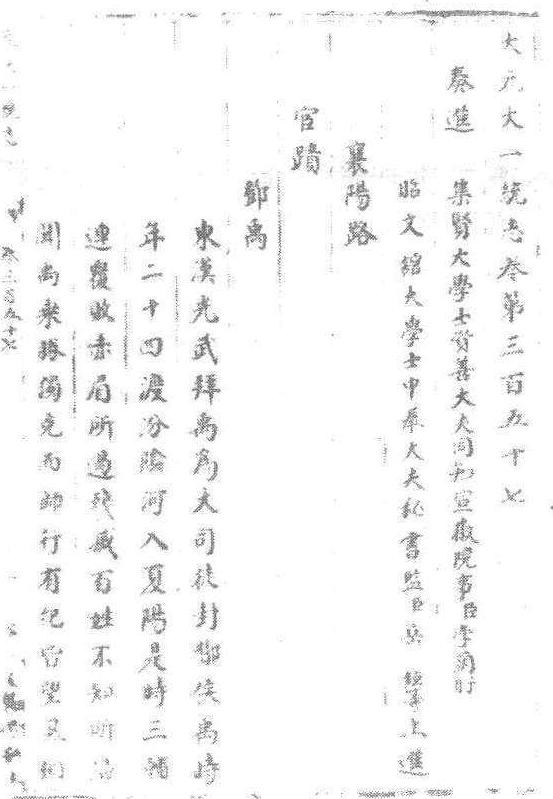 大元大一統志卷第三百五十七
奏進 集賢大學士資善大夫同知宣徽院事臣孛蘭肹
昭文館大學士中奉大夫秘書監臣岳 鉉等上進
襄陽路
官蹟
鄧禹
東漢光武拜禹爲大司徒封酇侯禹時
年二十四渡汾陰河入夏陽是時三輔
連覆敗赤眉所過殘滅百姓不知所歸
聞禹乘勝獨克而師行有紀皆望風相
卷三百五十七